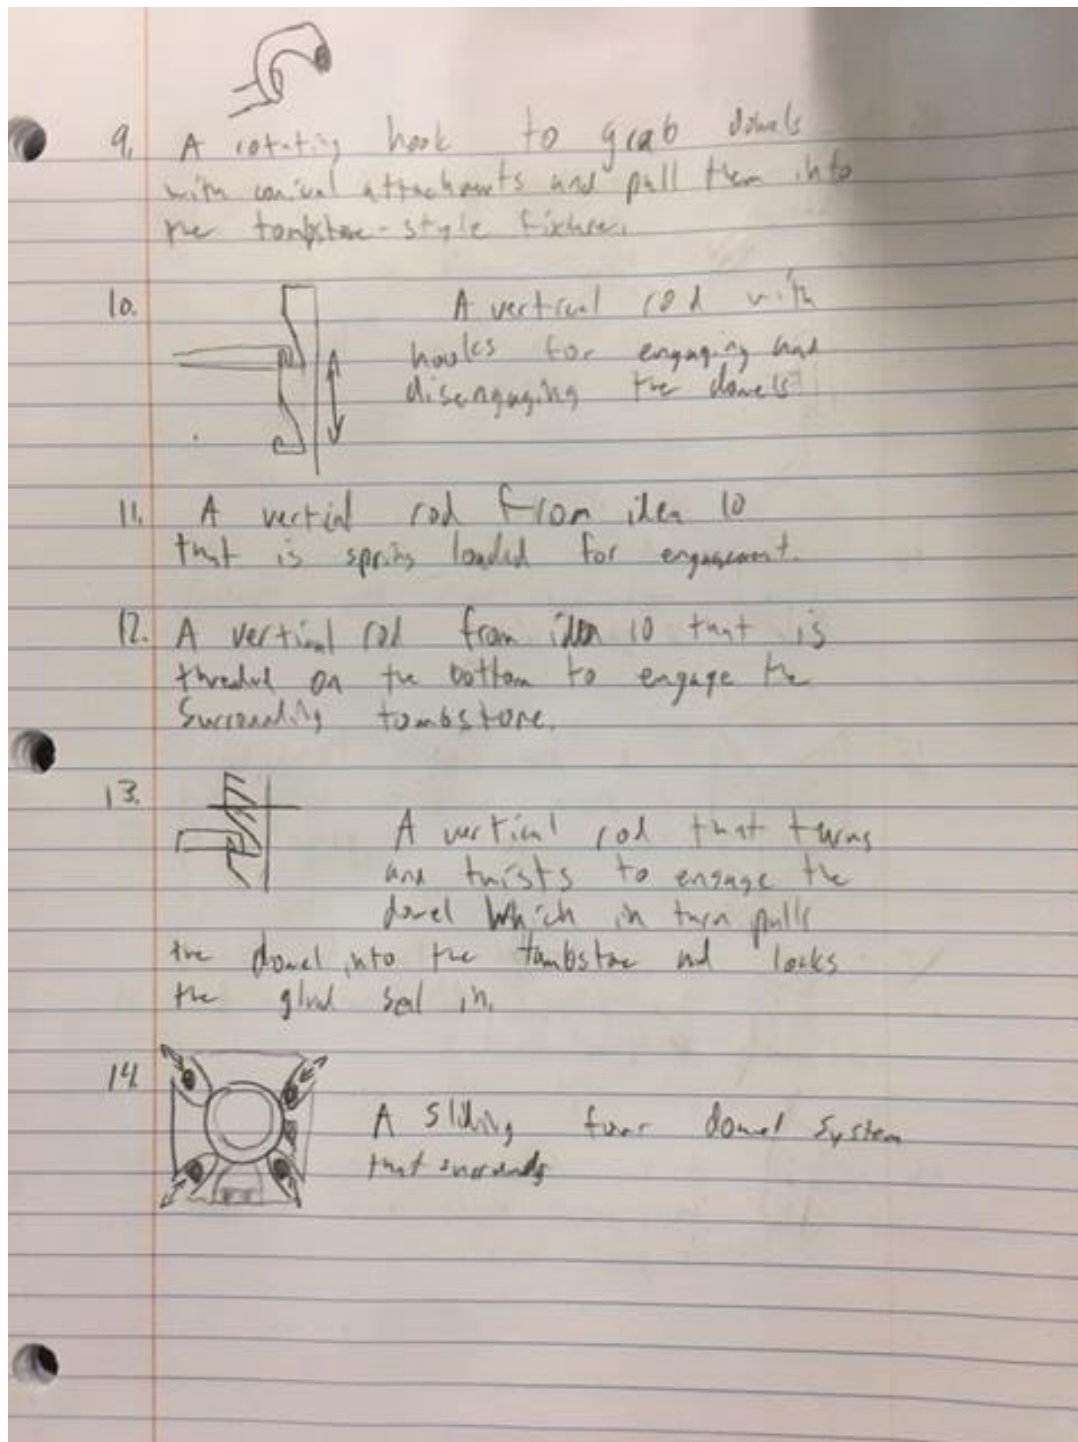 9. A rotating hook to grab dowels
with conical attachments and pull them into
the tombstone-style fixture.
10. A vertical rod with
hooks for engaging and
disengaging the dowels
11. A vertical rod from idea 10
that is spring loaded for engagement.
12. A vertical rod from idea 10 that is
threaded on the bottom to engage the
surrounding tombstone.
13. A vertical rod that turns
and twists to engage the
dowel which in turn pulls
the dowel into the tombstone and locks
the gland seal in.
14. A sliding four dowel system
that surrounds